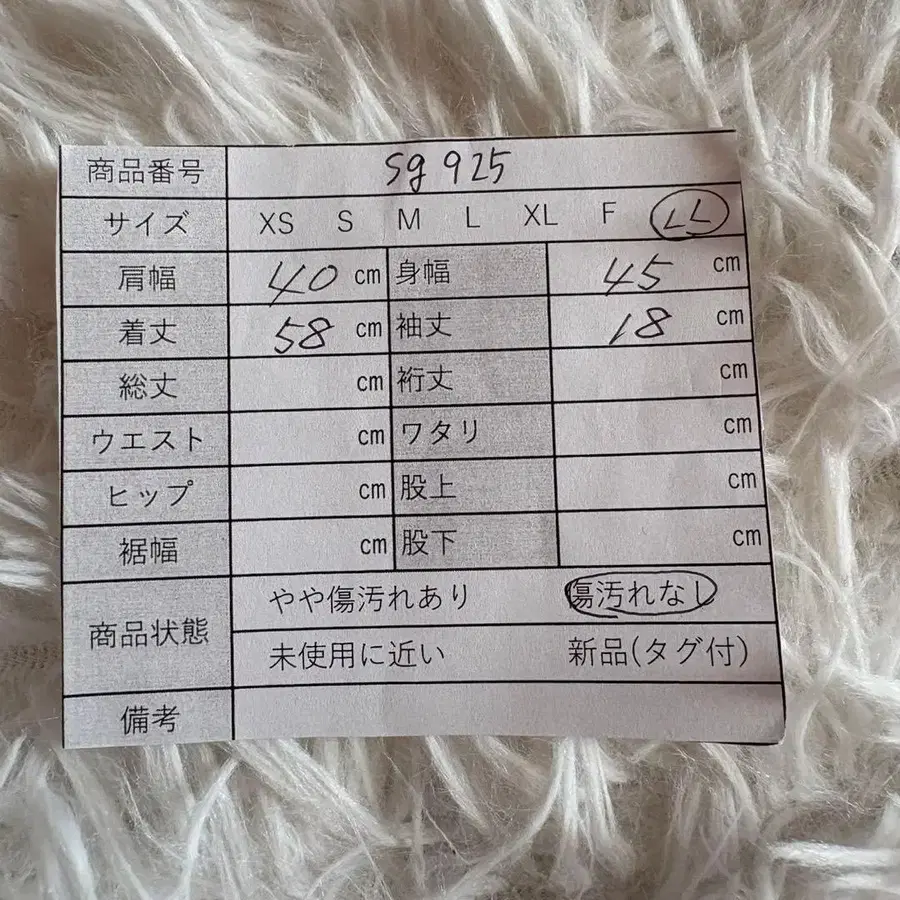 商品番号 sg 925
サイズ XS S M L XL F LL
肩幅 40 cm 身幅 45 cm
着丈 58 cm 袖丈 18 cm
総丈 cm 裄丈 cm
ウエスト cm ワタリ cm
ヒップ cm 股上 cm
裾幅 cm 股下 cm
商品状態 やや傷汚れあり 傷汚れなし
未使用に近い 新品(タグ付)
備考